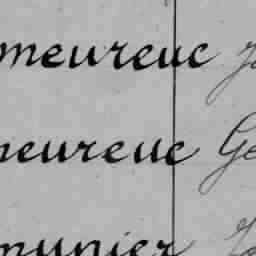 meureuc
meureuc Ge
munier